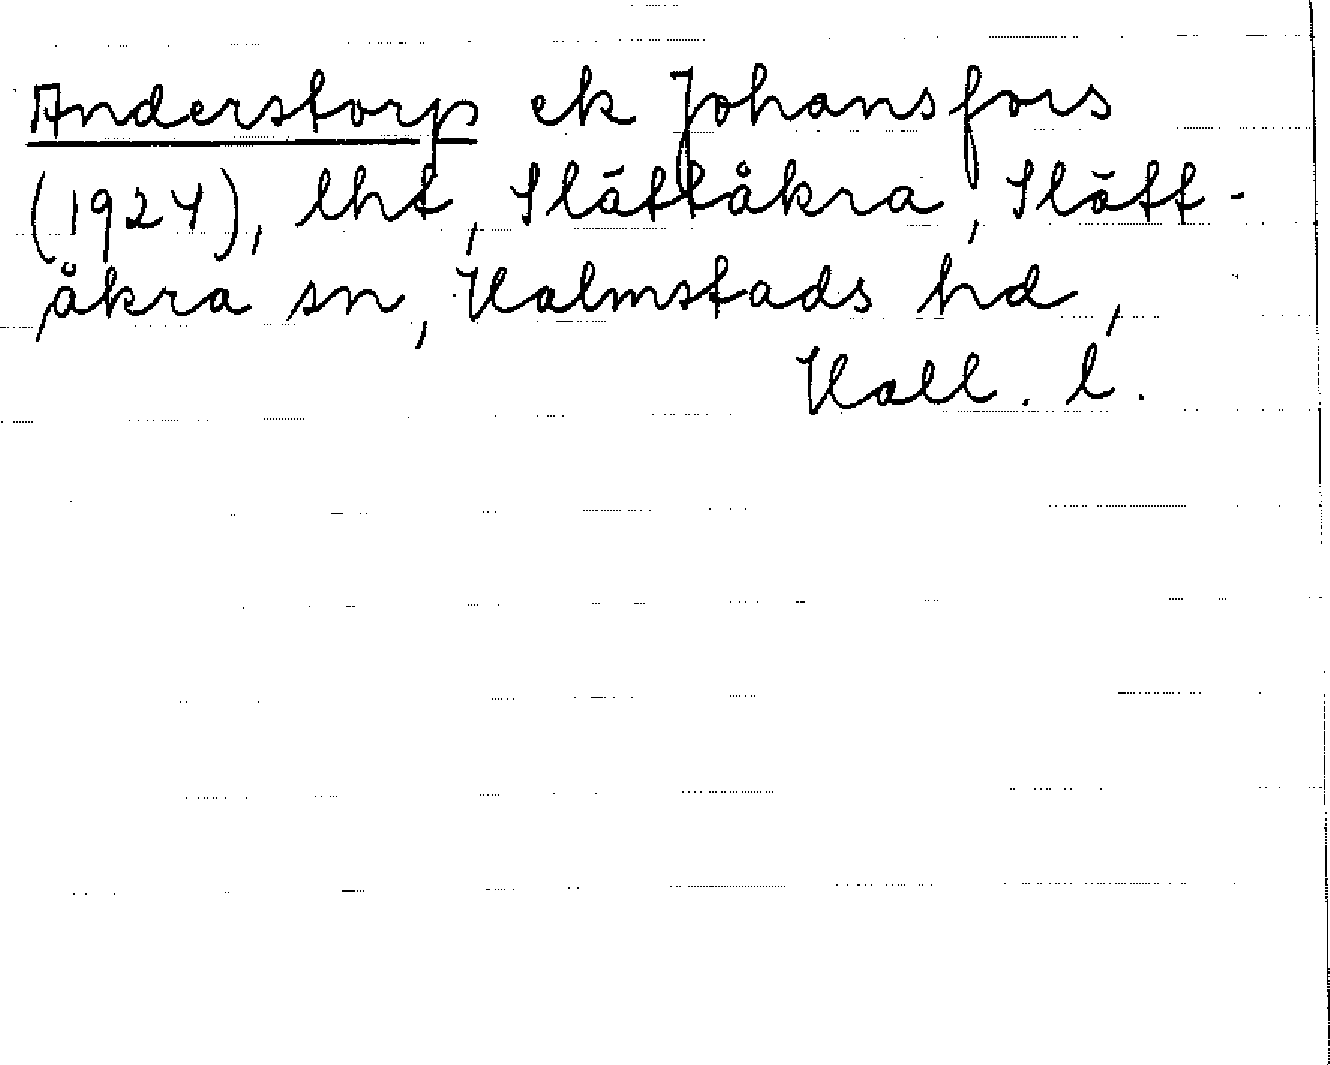 Anderstorp ek Johansfors
(1924), lht, Slättåkra, Slätt-
åkra sn, Halmstads hd,
Hall. l.